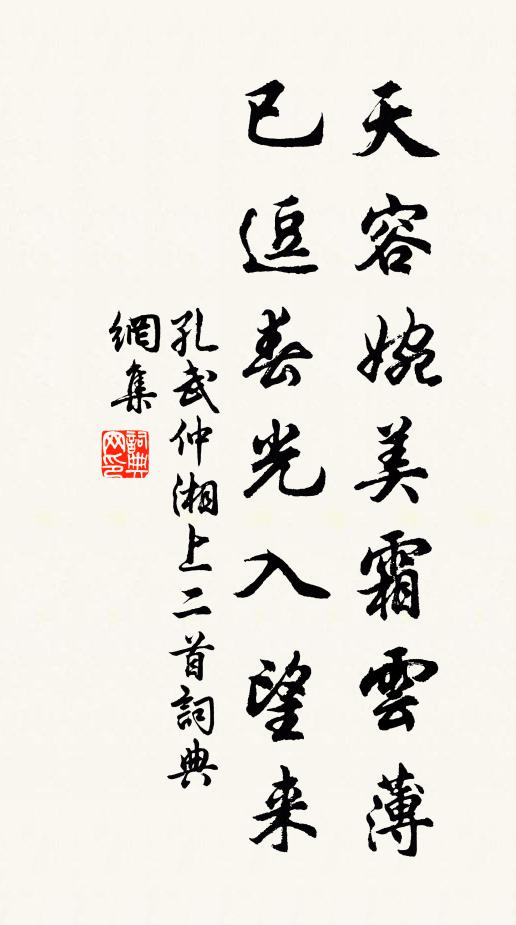 天容婉美霜雲薄
已逗春光入望来
孔武仲湘上二首詞典
網集
詞典網印